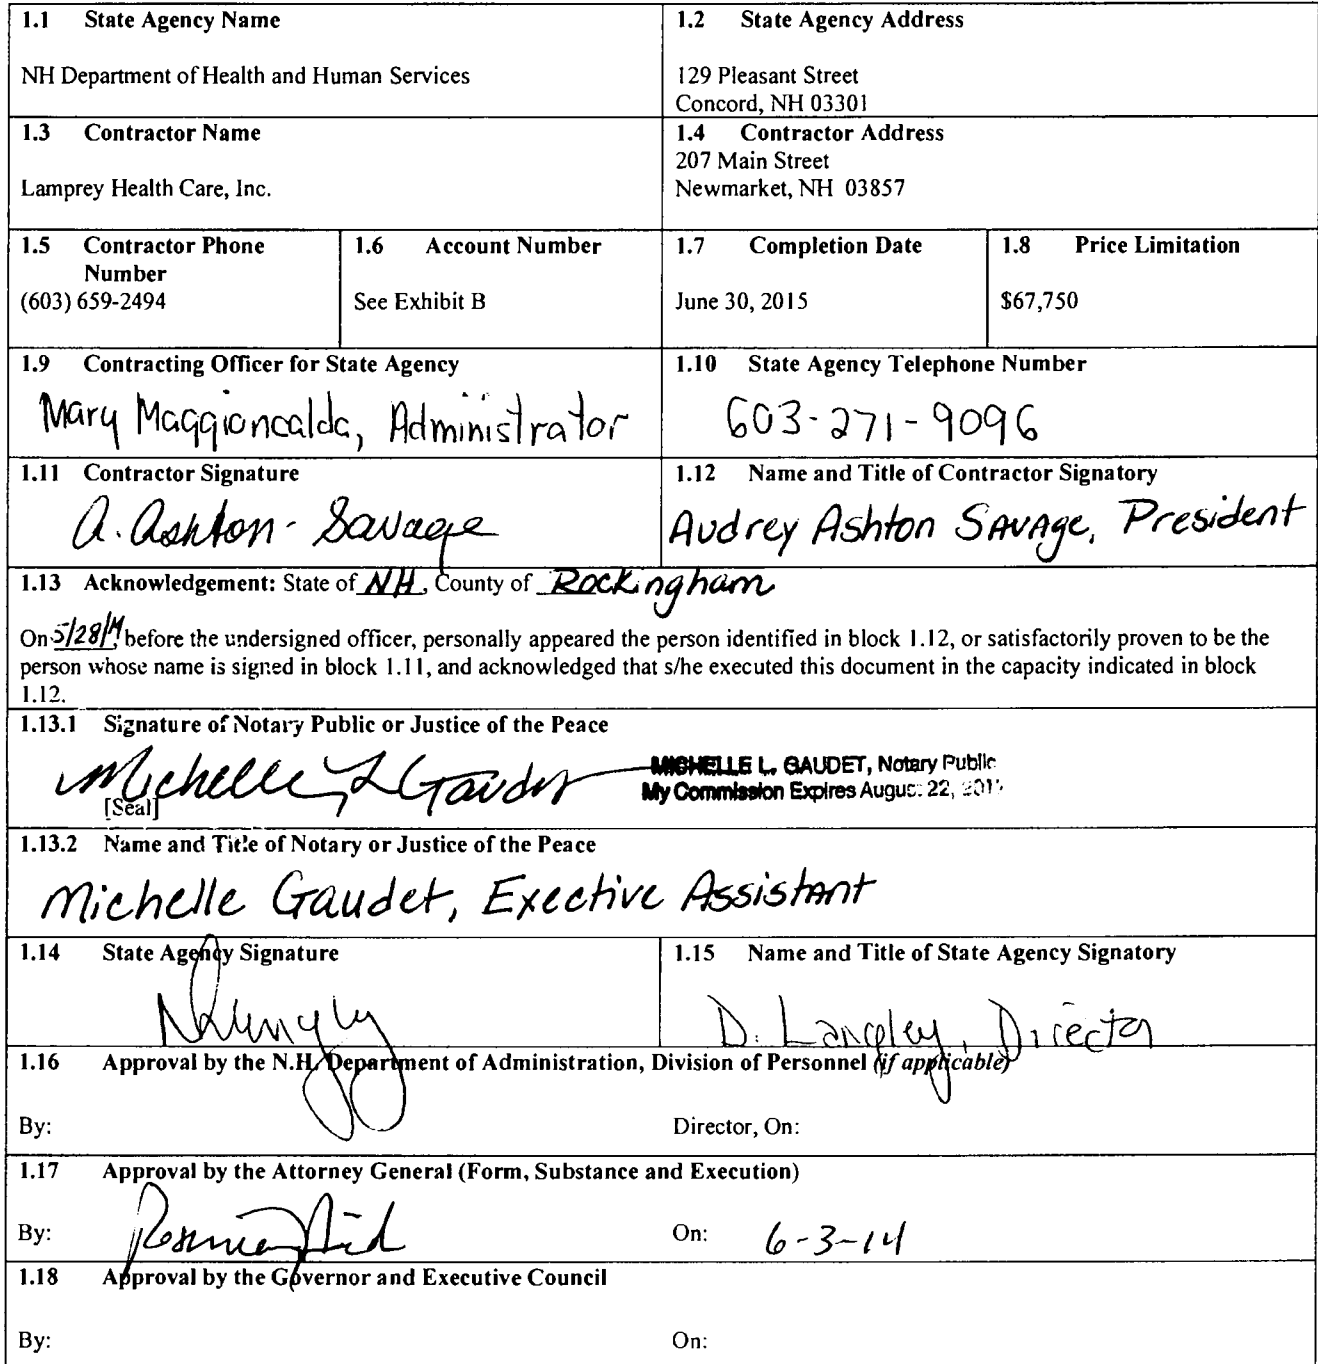 1.1 State Agency Name
NH Department of Health and Human Services
1.2 State Agency Address
129 Pleasant Street
Concord, NH 03301
1.3 Contractor Name
Lamprey Health Care, Inc.
1.4 Contractor Address
207 Main Street
Newmarket, NH 03857
1.5 Contractor Phone
Number
(603) 659-2494
1.6 Account Number
See Exhibit B
1.7 Completion Date
June 30, 2015
1.8 Price Limitation
$67,750
1.9 Contracting Officer for State Agency
Mary Maggioncalda, Administrator
1.10 State Agency Telephone Number
603-271-9096
1.11 Contractor Signature
A. Ashton-Savage
1.12 Name and Title of Contractor Signatory
Audrey Ashton Savage, President
1.13 Acknowledgement: State of NH, County of Rockingham
On 5/28/14, before the undersigned officer, personally appeared the person identified in block 1.12, or satisfactorily proven to be the
person whose name is signed in block 1.11, and acknowledged that s/he executed this document in the capacity indicated in block
1.12.
1.13.1 Signature of Notary Public or Justice of the Peace
Michelle L Gaudet
MICHELLE L. GAUDET, Notary Public
My Commission Expires August 22,
[Seal]
1.13.2 Name and Title of Notary or Justice of the Peace
Michelle Gaudet, Exective Assistant
1.14 State Agency Signature
1.15 Name and Title of State Agency Signatory
D. Langley, Director
1.16 Approval by the N.H. Department of Administration, Division of Personnel (if applicable)
By:
Director, On:
1.17 Approval by the Attorney General (Form, Substance and Execution)
By:
On: 6-3-14
1.18 Approval by the Governor and Executive Council
By:
On: